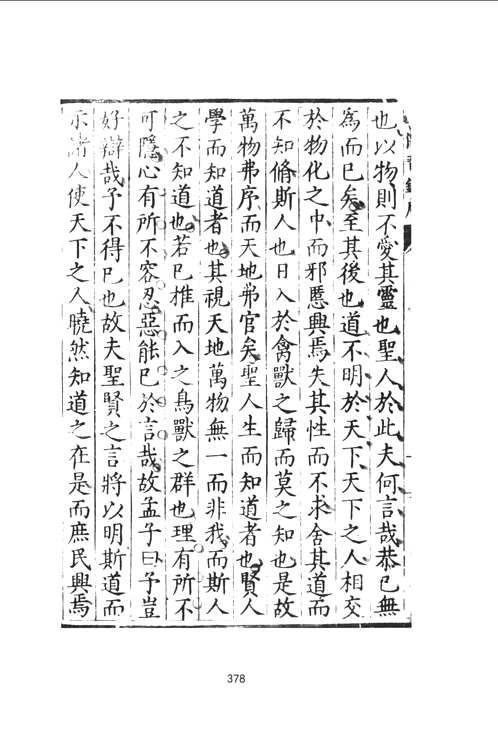 也以物則不愛其靈也聖人於此夫何言哉恭已無
為而已矣至其後也道不明於天下天下之人相交
於物化之中而邪慝興焉失其性而不求舍其道而
不知脩斯人也日入於禽獸之歸而莫之知也是故
萬物弗序而天地弗官矣聖人生而知道者也賢人
學而知道者也其視天地萬物無一而非我而斯人
之不知道也若已推而入之鳥獸之群也理有所不
可隱心有所不容忍惡能已於言哉故孟子曰予豈
好辯哉予不得已也故夫聖賢之言將以明斯道而
示諸人使天下之人曉然知道之在是而庶民興焉
378